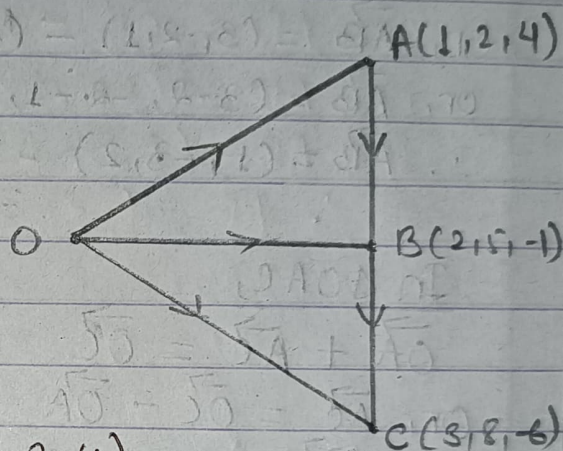 A(1,2,4)
O
B(2,5,-1)
C(3,8,-6)